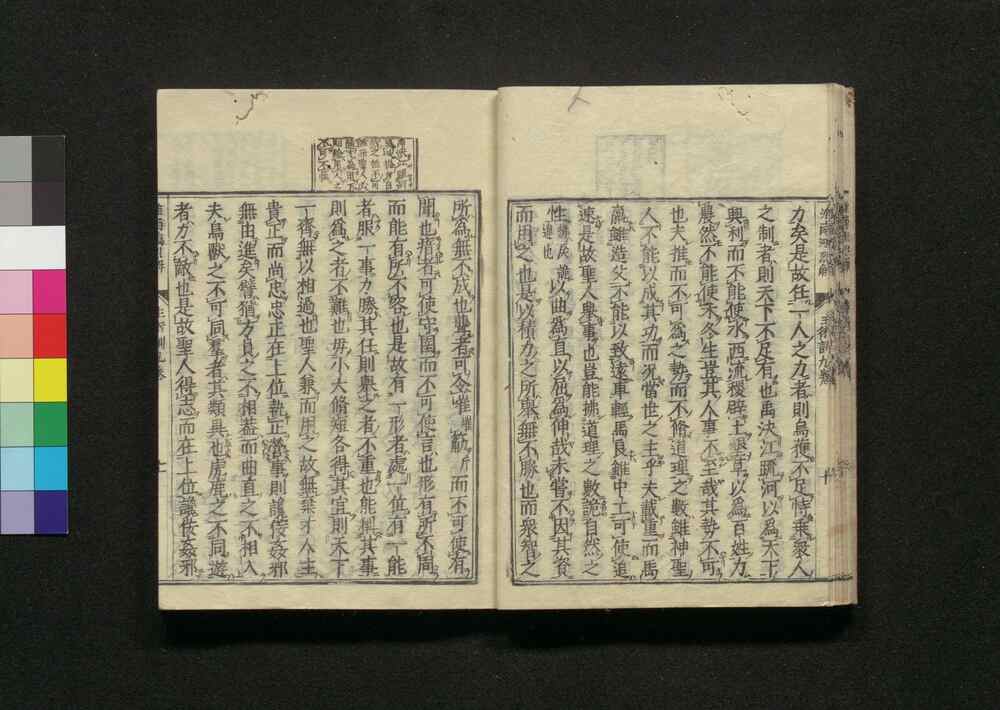 力矣是故任一人之力者則烏獲不足恃乗衆人
之制者則天下不足有也禹決江䟽河以為天下
興利而不能使水西流稷辟土墾草以為百姓力
農然不能使禾冬生豈其人事不至哉其勢不可
也夫推而不可為之勢而不脩道理之數雖神聖
人不能以成其功而况當世之主乎夫載重而馬
羸雖造父不能以致遠車輕馬良雖中工可使追
速是故聖人舉事也豈能拂道理之數詭自然之
性以曲為直以屈為伸哉未嘗不因其資
而用之也是以積力之所舉無不勝也而衆智之
所為無不成也聾者可令嗺筋而不可使有
聞也瘖者可使守圉而不可使言也形有所不周
而能有所不容也是故有一形者處一位有一能
者服一事力勝其任則舉之者不重也能稱其事
則為之者不難也毋小大脩短各得其宜則天下
一齊無以相過也聖人兼而用之故無棄才人主
貴正而尚忠忠正在上位執正營事則讒佞姦邪
無由進矣譬猶方員之不相葢而曲直之不相入
夫鳥獸之不可同羣者其類異也虎鹿之不同遊
者力不敵也是故聖人得志而在上位讒佞姦邪